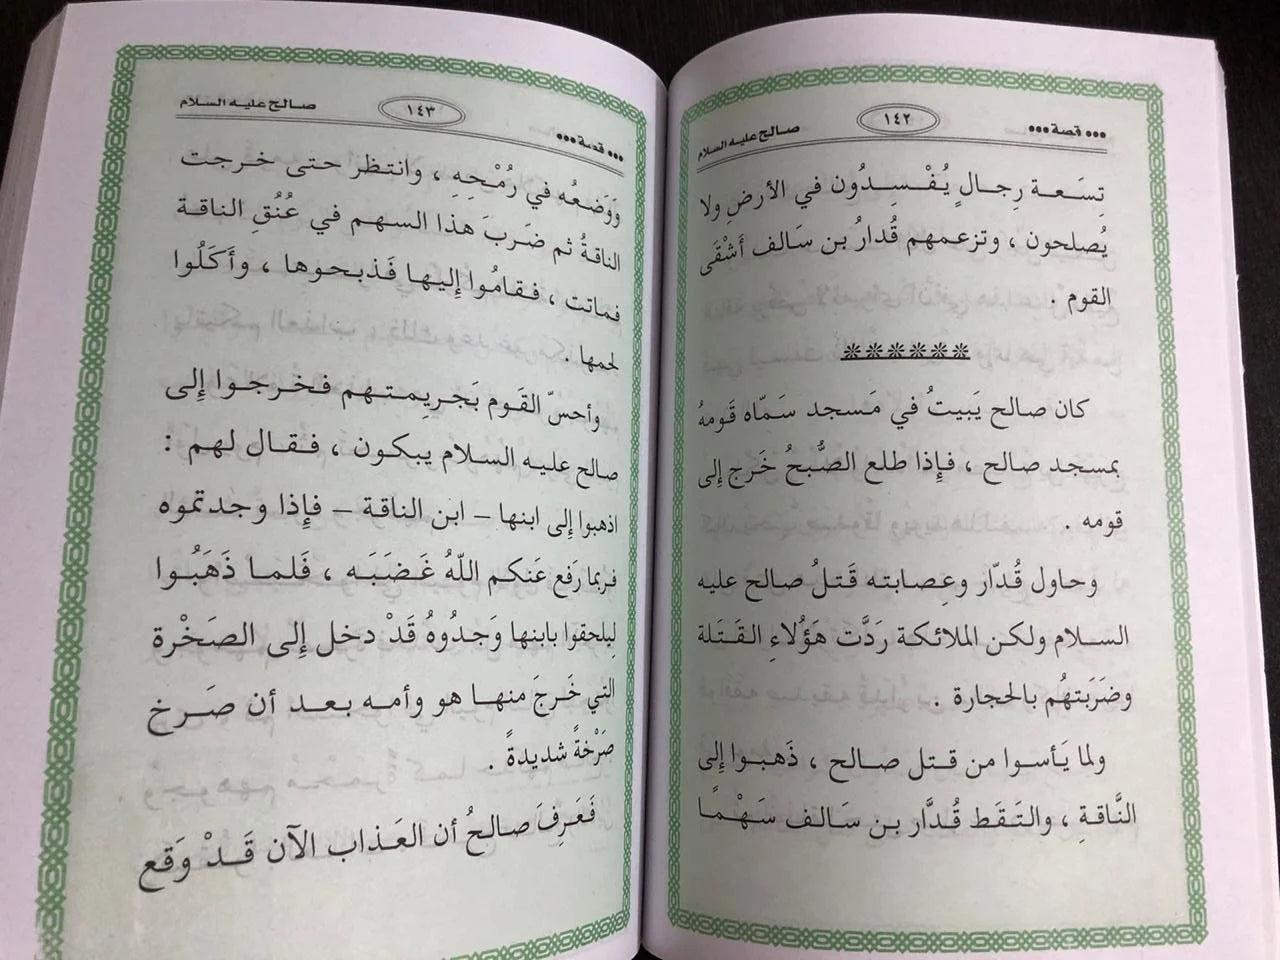 ••• قصة •••
١٤٢
صالح عليه السلام
تِسَعة رِجالٍ يُفْسِدُون في الأرضِ ولا
يُصلحون ، وتزعمهم قُدارُ بن سَالف أَشْقَى
القوم .
******
كان صالح يَبيتُ في مَسجد سَمّاه قَومهُ
بمسجد صالح ، فإِذا طلع الصُّبحُ خَرج إِلى
قومه .
وحاول قُدّار وعِصابته قَتلُ صالح عليه
السلام ولكن الملائكة رَدَّت هَؤُلاءِ القَتَلة
وضَرَبتهُم بالحجارة .
ولما يَأسوا من قتل صالح ، ذَهبوا إِلى
النَّاقةِ ، والتَقَط قُدَّار بن سَالف سَهْمًا
••• قصة •••
١٤٣
صالح عليه السلام
وَوَضعُه في رُمْحِهِ ، وانتظر حتى خرجت
الناقةُ ثم ضَربَ هذا السهم في عُنُقِ الناقة
فماتت ، فقامُوا إِليها فَذبحوها ، وأكَلُوا
لحمها .
وأحسّ القَوم بَجرِيمتهم فخرجوا إِلى
صالح عليه السلام يبكون ، فقال لهم :
اذهبوا إِلى ابنها – ابن الناقة – فإِذا وجدتموه
فربما رَفع عَنكم اللّهُ غَضَبَه ، فَلما ذَهَبُوا
لِيلحقوا بابنها وَجدُوهُ قَدْ دخل إِلى الصَخْرة
التي خَرجَ منها هو وأمه بعد أن صَرخ
صَرْخةً شديدةً .
فَعَرفَ صالحُ أن العَذاب الآن قَدْ وَقع